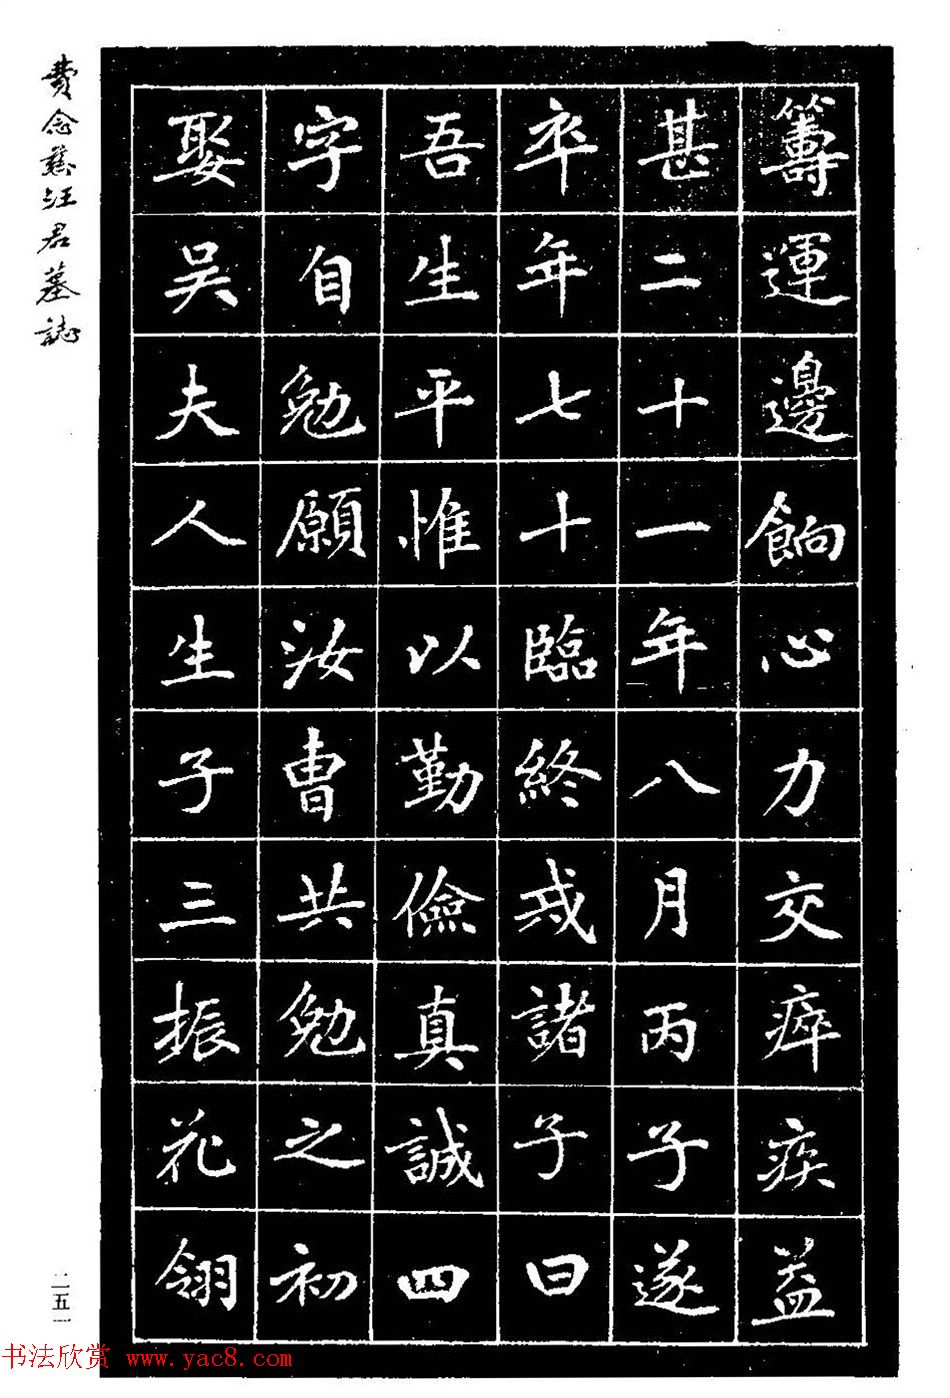 籌運邊餉心力交瘁疾益
甚二十一年八月丙子遂
卒年七十臨終戒諸子曰
吾生平惟以勤儉真誠四
字自勉願汝曹共勉之初
娶吳夫人生子三振花翎
費念慈汪君墓誌
二五一
书法欣赏 www.yac8.com